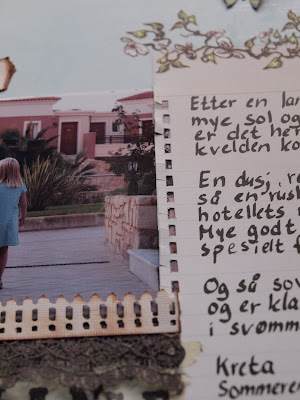 Etter en la
mye sol og
er det he
kvelden ko
En dusj, re
så en rusl
hotellets
Mye godt
spesielt f
Og så sov
og er kla
i svømm
Kreta
Sommere